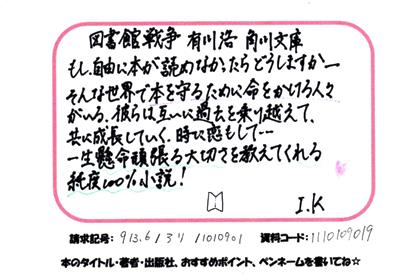 図書館戦争 有川浩 角川文庫
もし、自由に本が読めなかったらどうしますかー
そんな世界で本を守るために命をかける人々
がいる。彼らは互いに過去を乗り越えて、
共に成長していく。時に恋もして…
一生懸命頑張る大切さを教えてくれる
純度100%小説!
I.K
請求記号: 913.6/アリ/1010901 資料コード:1110109019
本のタイトル・著者・出版社、おすすめポイント、ペンネームを書いてね☆